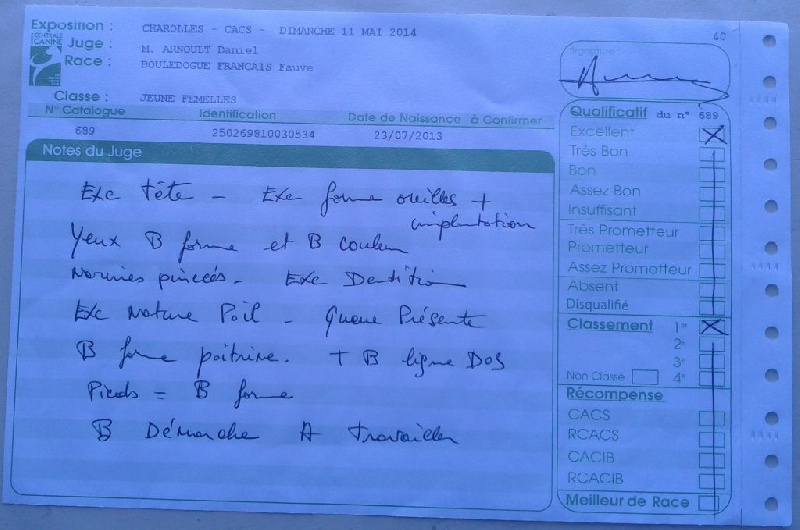 Exposition : CHAROLLES - CACS - DIMANCHE 11 MAI 2014
60
CENTRALE CANINE
Juge : M. ARNOULT Daniel
Race : BOULEDOGUE FRANCAIS Fauve
Classe : JEUNE FEMELLES
N° Catalogue Identification Date de Naissance à Confirmer
689 250269810030534 23/07/2013
Notes du Juge
Exc Tête - Exc forme oreilles +
implantation
Yeux B forme et B couleur
Narines pincées - Exc Dentition
Exc Nature Poil - Queue Présente
B forme poitrine. + B ligne DOS
Pieds = B forme
B Démarche A Travailler
Signature
Qualificatif du n° 689
Excellent
Très Bon
Bon
Assez Bon
Insuffisant
Très Prometteur
Prometteur
Assez Prometteur
Absent
Disqualifié
Classement 1er
2e
3e
Non Classé 4e
Récompense
CACS
RCACS
CACIB
RCACIB
Meilleur de Race